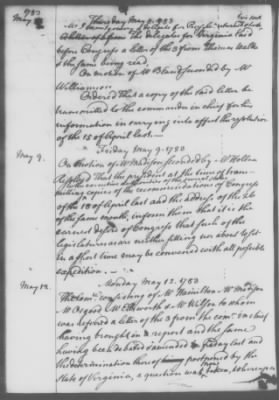 1783
May 8.
Thursday May 8. 1783
his seat
A letter of 6 from the delegates for Virginia laid
before Congress a letter of the 3 from Thomas Walke
of the same being read,
On motion of Mr Bland seconded by Mr
Williamson
Ordered that a copy of the said letter be
transmitted to the commander in chief for his
information in carrying into effect the resolution
of the 15 of April last. —
Friday May 9. 1783
May 9.
On motion of Mr Madison seconded by Mr Holten
Resolved That the president at the time of trans-
to the executive authorities of the several states
mitting copies of the recommendations of Congress
of the 18 of April last and the address of the 26
of the same month, inform them that it is the
earnest desire of Congress that such of the
legislatures as are neither sitting nor about to sit
in a short time may be convened with all possible
expedition. —
Monday May 12. 1783
May 12.
The comee consisting of Mr Hamilton Mr Madison
Mr Osgood Mr Ellsworth & Mr Wilson to whom
was referred a letter of the 3 from the comr in chief
having brought in a report and the same
having been debated & amended friday last and
the determination thereof postponed by the
State of Virginia, a question was now taken, &